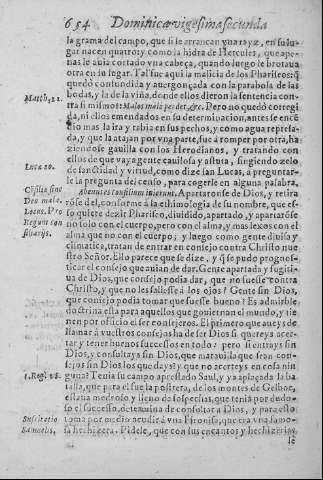 654 Dominica vigesima secunda
la grama del campo, que si le arrancan vna rayz, en su lu-
gar nacen quatro; y como la hidra de Hercules, que ape-
nas le auia cortado vna cabeça, quando luego le brotaua
otra en su lugar. Tal fue aqui la malicia de los Phariseos: q̃
quedó confundida y auergonçada con la parabola de las
Matth. 21. bodas, y la de la viña, donde ellos dieron la sentencia con
tra si mismos: Malos male perdet, &c. Pero no quedó corregi
da, ni ellos emendados en su determinacion, antes se encẽ
dio mas la ira y rabia en sus pechos, y como agua represa-
da, y que la atajan por vna parte, fue á romper por otra, ha
ziendose gauilla con los Herodianos, y tratando con
ellos de que vaya gente cauilosa y astuta, fingiendo zelo
Luca 20. de sanctidad y virtud, como dize san Lucas, á preguntar-
le la pregunta del censo, para cogerle en alguna palabra.
Cõsilia sine Abeuntes consilium inierunt. Apartaronse de Dios, y retira
Deo mala. rõse del, conforme á la ethimologia de su nombre, que es-
Lucas. Pro so quiere dezir Phariseo, diuidido, apartado, y apartarõse
Regum con no solo con el cuerpo, pero con el alma, y mas lexos con el
siliarijs. alma que no con el cuerpo; y luego como gente diuisa y
cismatica, tratan de entrar en consejo contra Christo nue-
stro Señor. Ello parece que se dize, y q̃ se pudo pronos-
ticar el consejo que auian de dar. Gente apartada y fugiti-
ua de Dios, que consejo podia dar, que no fuesse contra
Christo, y que no les saliesse á los ojos? Gente sin Dios,
que consejo podia tomar que fuesse bueno? Es admirble
doctrina esta para aquellos que gouiernan el mundo, y tie
nen por officio el ser consejeros. El primero que aueys de
llamar á vuestros consejos ha de ser Dios si quereys acer-
tar y tener buenos successos en todo: pero si entrays sin
Dios, y consultays sin Dios, que marauilla que sean con-
sejos sin Dios los que days? y que no acerteys en cosa nin
1. Reg. 28. guna? Tenia su campo apercebido Saul, y ya aplaçada la ba
talla, que para el fue la postrera, de los montes de Gelboe,
estaua medroso y lleno de sospechas, que tenia por dudo-
so el successo, determina de consultar á Dios, y para esto
Suscitatio toma por medio acudir á vna Pitonisa, que era vna famo-
Samuelis. sa hechizera. Pidele, que con sus encantos y hechizerias
le